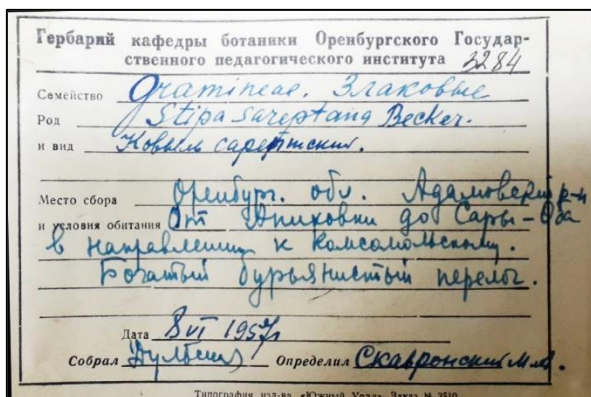 Гербарий кафедры ботаники Оренбургского Государ-
ственного педагогического института 3284
Семейство Gramineae. Злаковые
Род Stipa sareptana Becker.
и вид Ковыль сарептский.
Место сбора Оренбург. обл. Адамовский р-н
и условия обитания От Аниховки до Сары-Оба
в направлении к Комсомольскому.
Богатый бурьянистый перелог.
Дата 8 VI 1957г
Собрал Определил Скавронский М.М.
Типография изд-ва «Южный Урал» Заказ № 3510